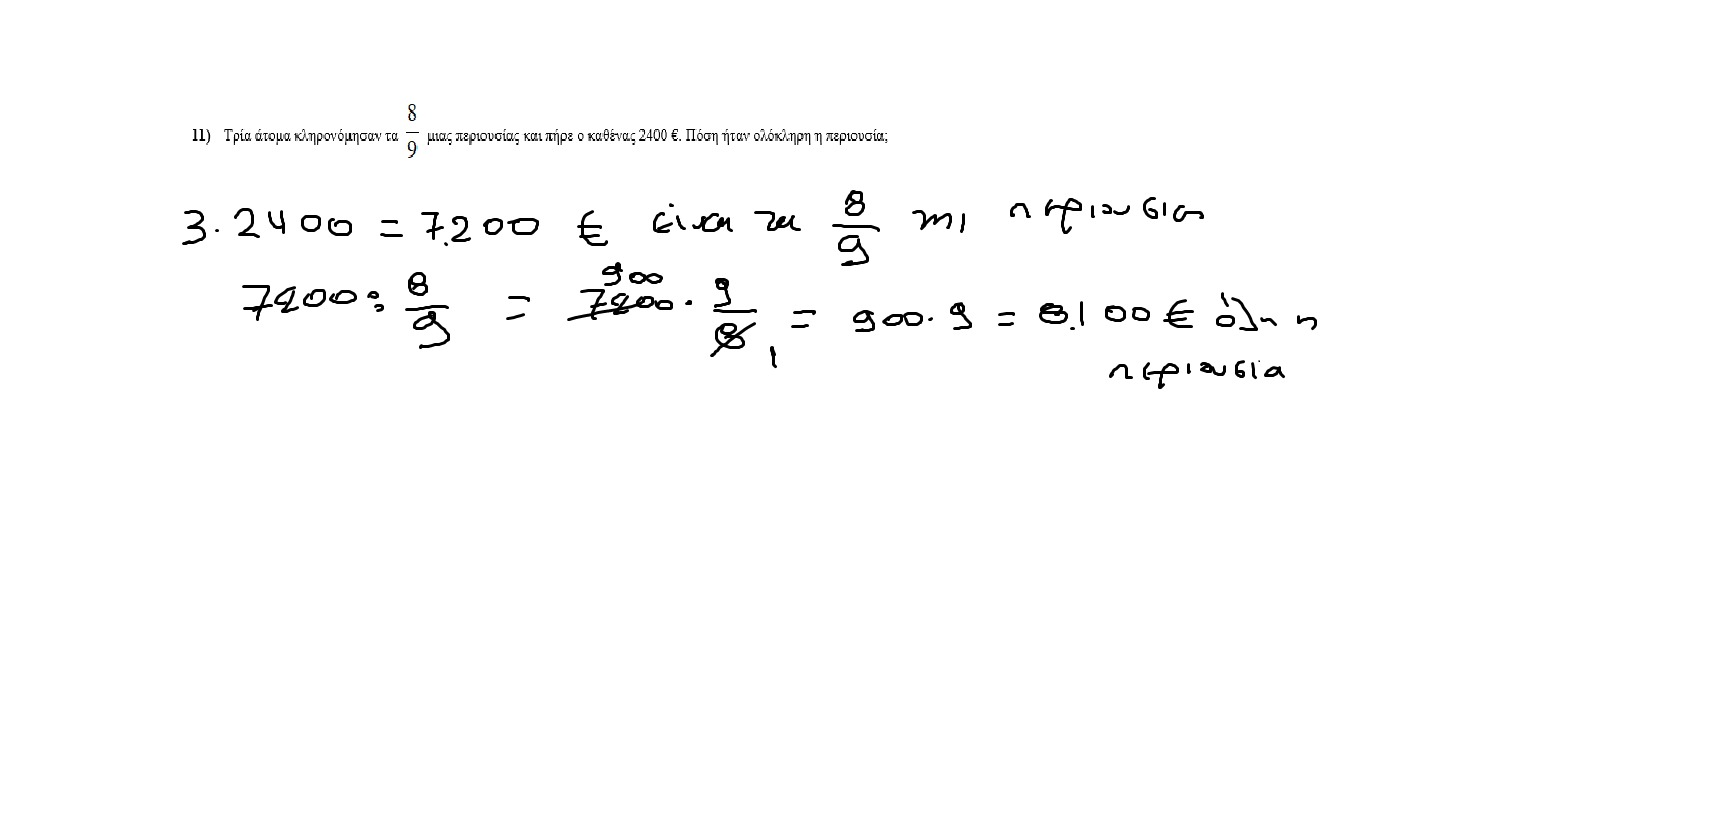 11) Τρία άτομα κληρονόμησαν τα 8/9 μιας περιουσίας και πήρε ο καθένας 2400 €. Πόση ήταν ολόκληρη η περιουσία;
3. 2400 = 7.200 € είναι τα 8/9 της περιουσίας
7200 : 8/9 = 7200 900 . 9/8 1 = 900 . 9 = 8.100 € όλη η
περιουσία